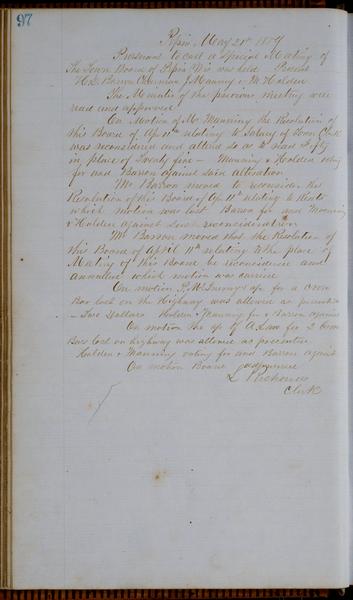 97
Pepin May 21st 18
Pursuant to call a Special Meeting of
The Town Board of Pepin Wis was held Present
H. D. Barron Chairman J Manning & Holden
The Minutes of the previous meeting were
read and approved
On Motion of Mr Manning the Resolution of
this Board of Ap 11th relating to Salary of Town Clerk
was reconsidered and altered so as to read Fifty
in place of Twenty five — Manning & Holden voting
for and Barron against said alteration
Mr Barron moved to reconsider the
Resolution of this Board of Ap 11th relating to
which motion was lost Barron for and Manning
& Holden against such reconsideration
Mr Barron moved that the Resolution of
this Board of April 11th relating to the place of
Meeting of this Board be reconsidered and
annulled which motion was carried
On motion a/c for a
on the Highway was allowed as presented
— Two Dollars Holden & Manning for & Barron against
On motion the a/c of A Law for 2
on highway was allowed as presented
Holden & Manning voting for and Barron against
On motion Board adjourned
L
Clerk